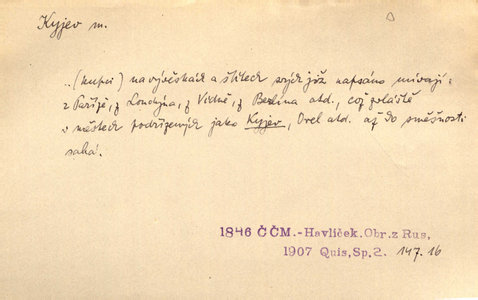 Kyjev m.
..(kupci) na vývěskách a štítech svých již napsáno mívají:
z Paříže, z Londýna, z Vídně, z Berlína atd., což zvláště
v městech podřízených jako Kyjev, Orel atd. až do směšnosti
sahá.
1846 ČČM.-Havlíček.Obr.z Rus,
1907 Quis,Sp.2. 147.16